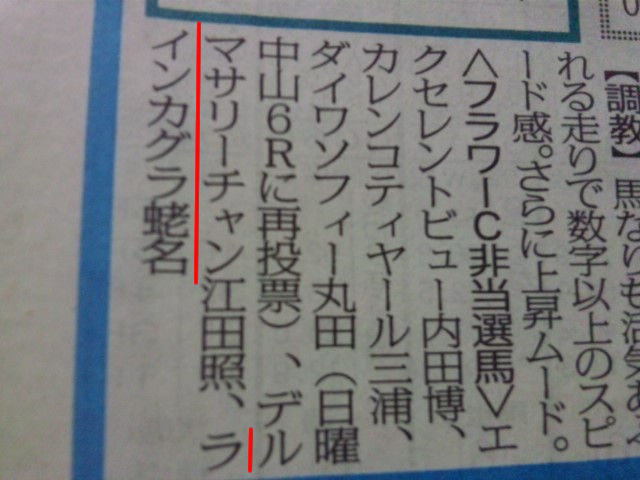 【調教】馬なりも活気あふ
れる走りで数字以上のスピ
ード感。さらに上昇ムード。
〈フラワーC非当選馬〉エ
クセレントビュー内田博、
カレンコティヤール三浦、
ダイワソフィー丸田（日曜
中山6Rに再投票）、デル
マサリーチャン江田照、ラ
インカグラ蛯名